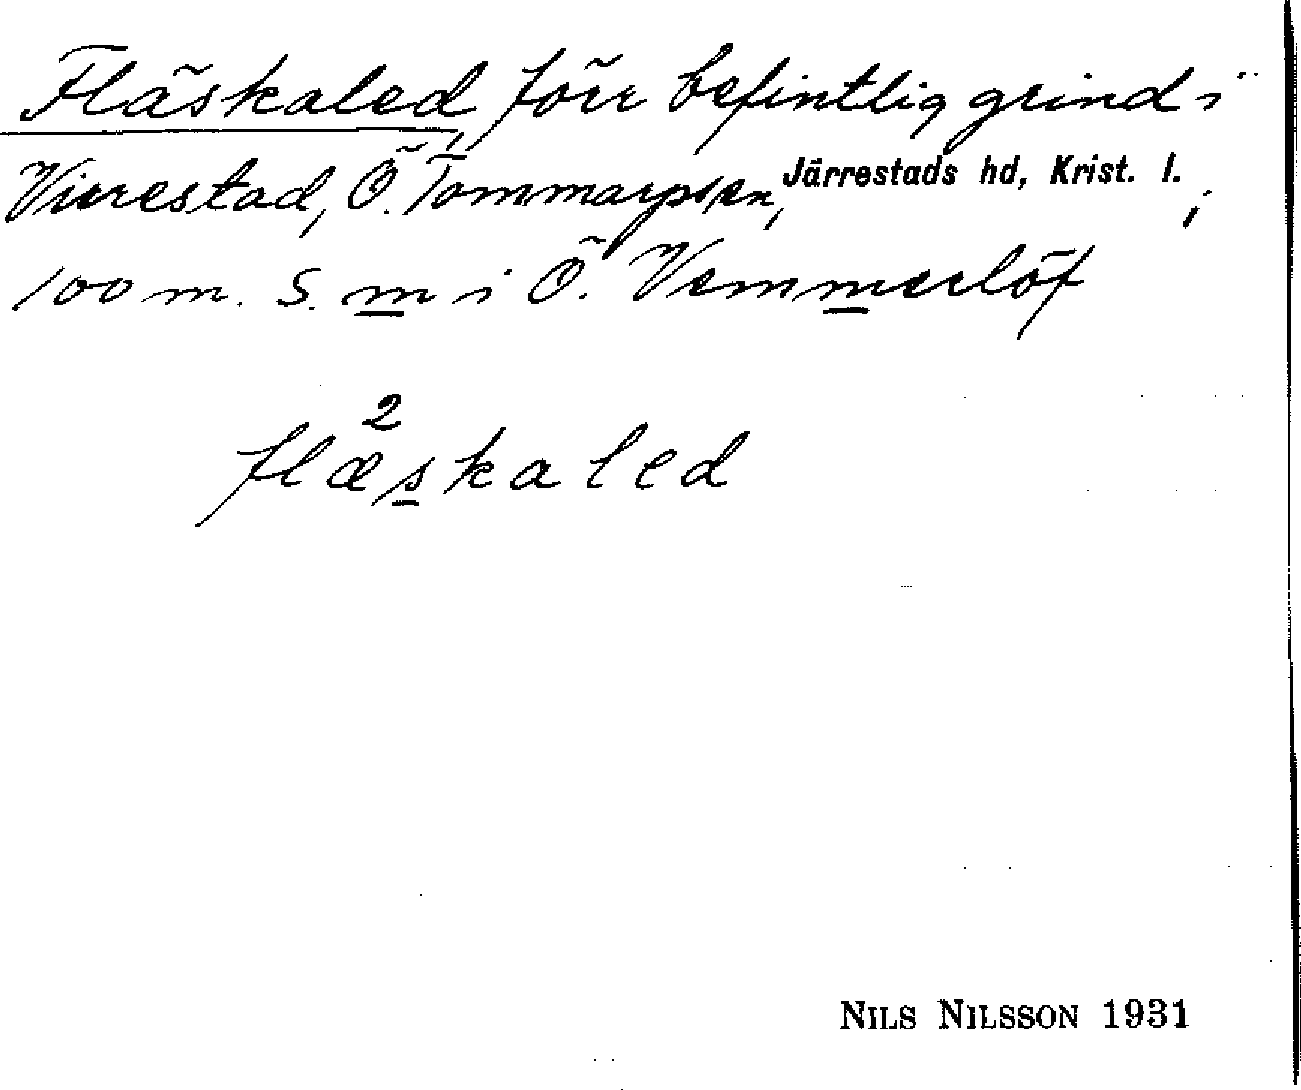 Fläskaled, förr befintlig grind i
Virrestad, Ö. Tommarps sn, Järrestads hd, Krist. l. ;
100 m. S. m i Ö. Vemmerlöf
2
flæskaled
NILS NILSSON 1931